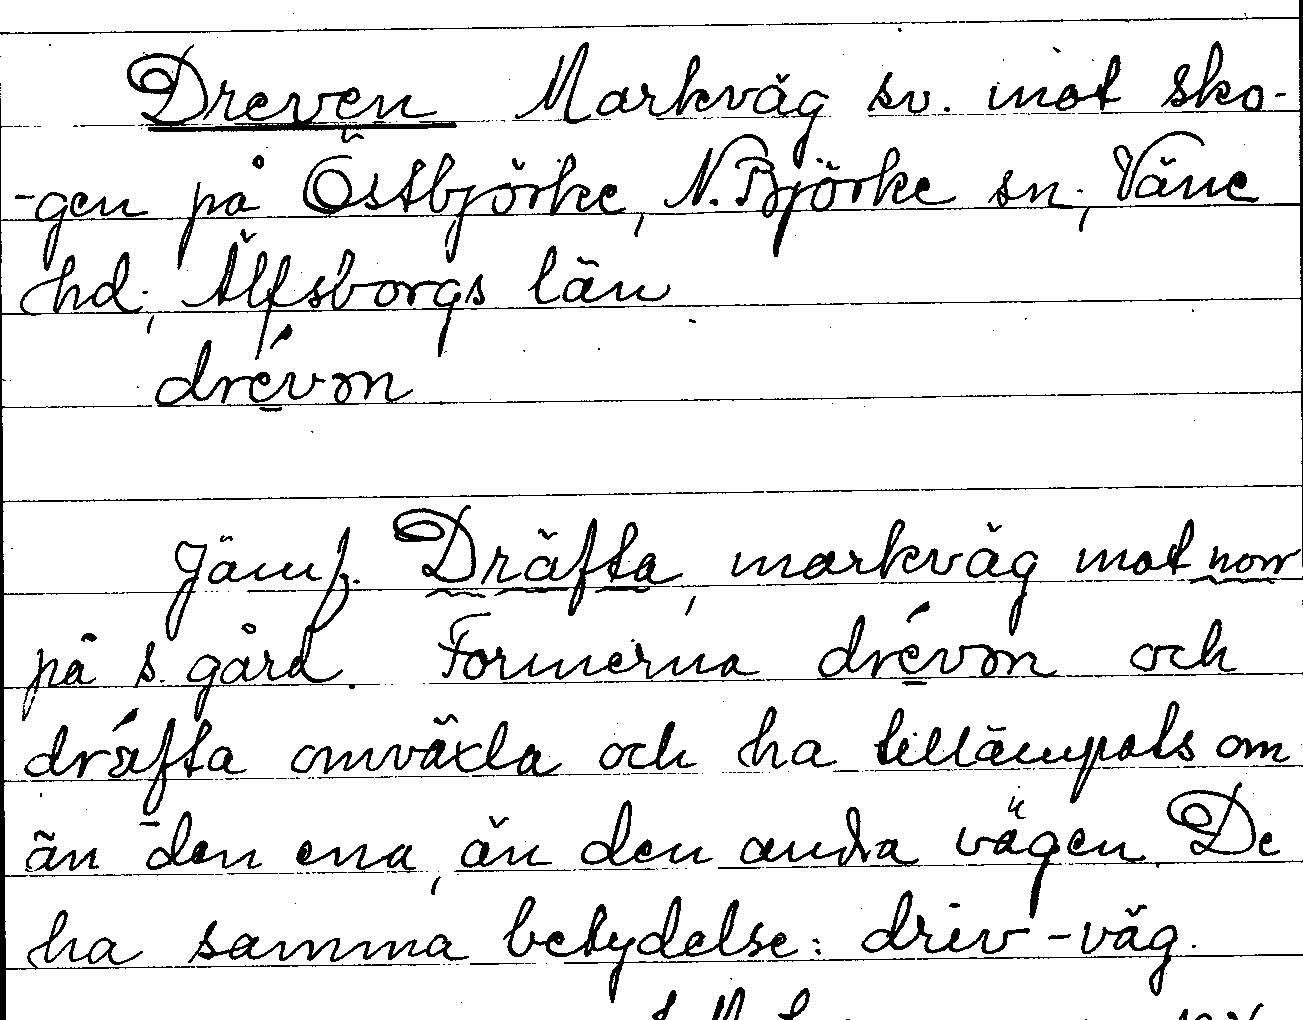 Dreven Markväg sv. mot sko-
-gen på Östbjörke, N. Björke sn, Väne
hd, Älfsborgs län
drévon
Jämf. Dräfta, markväg mot norr
på s. gård. Formerna drévon och
dráfta omväxla och ha tillämpats om
än den ena, än den andra vägen. De
ha samma betydelse: driv-väg.